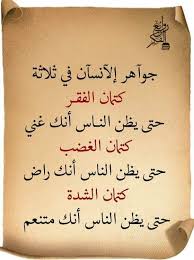 جوآهر إلآنسآن في ثلآثة
كتمان الفقر
حتى يظن الناس أنك غني
كتمان الغضب
حتى يظن الناس أنك راض
كتمان الشدة
حتى يظن الناس أنك متنعم